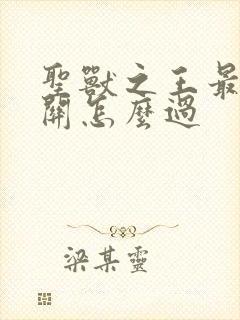 聖獸之王最
關怎麼過
梁某靈